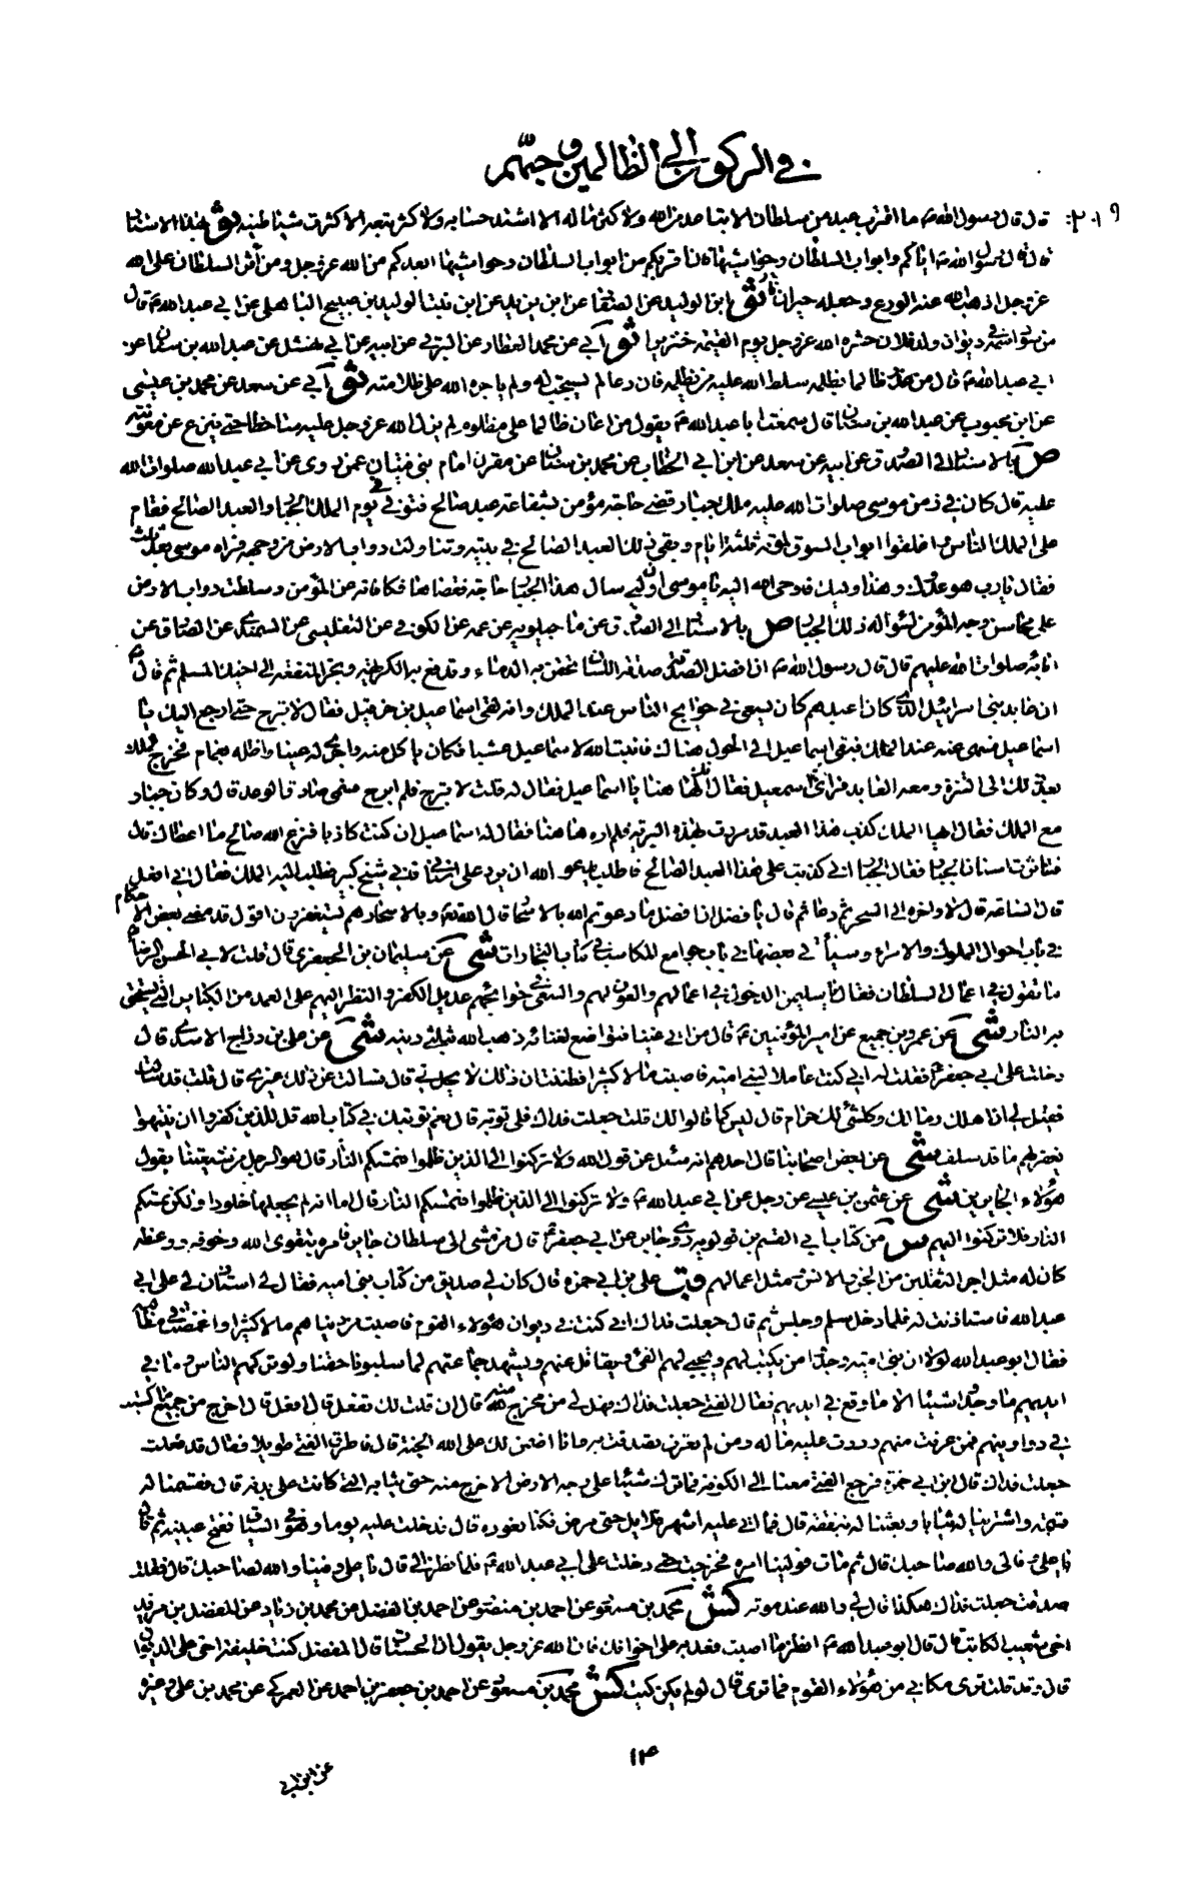 في الركون الى الظالمين وحبهم
٢٠٩: قال قال رسول الله ص ما اقترب عبد من سلطان الا تباعد من الله ولا كثر ماله الا اشتد حسابه ولا كثر تبعه الا كثرت شياطينه ثو بهذا الاسناد
قال قال رسول الله ص اياكم وابواب السلطان وحواشيها فان اقربكم من ابواب السلطان وحواشيها ابعدكم من الله عز وجل ومن آثر السلطان على الله
عز وجل اذهب الله عنه الورع وجعله حيرانا ثو ابن الوليد عن الصفار عن ابن يزيد عن ابن بنت الوليد بن صبيح الباهلي عن ابي عبد الله ع قال
من سود اسمه في ديوان ولد فلان حشره الله عز وجل يوم القيمة خنزيرا ثو ابي عن محمد العطار عن عن ابيه عن ابي نهشل عن عبد الله بن سنان عن
ابي عبد الله ع قال من عذر ظالما بظلمه سلط الله عليه من يظلمه فان دعا لم يستجب له ولم ياجره الله على ظلامته ثو ابي عن سعد عن محمد بن عيسى
عن ابن محبوب عن عبد الله بن سنان قال سمعت ابا عبد الله ع يقول من اعان ظالما على مظلوم لم يزل الله عز وجل عليه ساخطا حتى ينزع عن معونته
ص بالاسناد الى الصدوق عن ابيه عن سعد عن ابن ابي الخطاب عن محمد بن سنان عن مقرن امام بني فتيان عمن روى عن ابي عبد الله صلوات الله
عليه قال كان في زمن موسى صلوات الله عليه ملك جبار قضى حاجة مؤمن بشفاعة عبد صالح فتوفي في يوم الملك الجبار والعبد الصالح فقام
على الملك الناس واغلقوا ابواب السوق لموته ثلثة ايام وبقي ذلك العبد الصالح في بيته وتناولت دواب الارض من وجهه فراه موسى بعد ثلث
فقال يا رب هو عدوك وهذا وليك فاوحى الله اليه يا موسى ان وليي سال هذا الجبار حاجة فقضاها فكافاته عن المؤمن وسلطت دواب الارض
على محاسن وجه المؤمن لسؤاله ذلك الجبار ص بالاسناد الى الصدوق عن ماجيلويه عن عمه عن الكوفي عن التفليسي عن السمندي عن الصادق عن
ابائه صلوات الله عليهم قال قال رسول الله ص ان افضل الصدقة صدقة اللسان تحقن به الدماء وتدفع به الكريهة وتجر المنفعة الى اخيك المسلم ثم قال ص
ان عابد بني اسرائيل الذي كان اعبدهم كان يسعى في حوايج الناس عند الملك وانه لقي اسماعيل بن حزقيل فقال لا تبرح حتى ارجع اليك يا
اسماعيل فسهى عنه عند الملك فبقي اسماعيل الى الحول هناك فانبت الله لاسماعيل عشبا فكان ياكل منه واجرى له عينا واظله بغمام فخرج الملك
بعد ذلك الى التنزه ومعه العابد فراى اسمعيل فقال انك لهاهنا يا اسماعيل فقال له قلت لا تبرح فلم ابرح فسمي صادق الوعد قال وكان جبار
مع الملك فقال ايها الملك كذب هذا العبد قد مررت بهذه البرية فلم اره هاهنا فقال له اسماعيل ان كنت كاذبا فنزع الله صالح ما اعطاك قال
فتناثرت اسنان الجبار فقال الجبار اني كذبت على هذا العبد الصالح فاطلب يدعو الله ان يرد علي اسناني فاني شيخ كبير فطلب اليه الملك فقال اني افعل
قال الساعة قال لا واخره الى السحر ثم دعا ثم قال يا فضل ان افضل ما دعوتم الله بالاسحار قال الله تعالى وبالاسحار هم يستغفرون اقول قد مضى بعض الاحكام
في باب احوال الملوك والامراء وسياتي بعضها في باب جوامع المكاسب في كتاب التجارات شى عن سليمان بن الجعفري قال قلت لابي الحسن الرضا ع
ما تقول في اعمال السلطان فقال يا سليمن الدخول في اعمالهم والعون لهم والسعي في حوايجهم عديل الكفر والنظر اليهم على العمد من الكباير التي يستحق
بها النار شى عن عمرو بن جميع عن امير المؤمنين ع قال من اتى غنيا فتواضع لغنائه ذهب الله بثلثي دينه شى عن علي بن دراج الاسدي قال
دخلت على ابي جعفر ع فقلت له اني كنت عاملا لبني امية فاصبت مالا كثيرا فظننت ان ذلك لا يحل لي قال فسالت عن ذلك غيري قال قلت قد سالت
فقيل لي ان اهلك ومالك وكل شئ لك حرام قال ليس كما قالوا لك قلت جعلت فداك فلي توبة قال نعم توبتك في كتاب الله قل للذين كفروا ان ينتهوا
يغفر لهم ما قد سلف شى عن بعض اصحابنا قال احدهم انه سئل عن قول الله ولا تركنوا الى الذين ظلموا فتمسكم النار قال هو الرجل من شيعتنا يقول
هؤلاء الجايرين شى عن عثمن بن عيسى عن رجل عن ابي عبد الله ع ولا تركنوا الى الذين ظلموا فتمسكم النار قال اما انه لم يجعلها خلودا ولكن تمسكم
النار فلا تركنوا اليهم سر من كتاب ابي القسم بن قولويه روى جابر عن ابي جعفر ع قال من مشى الى سلطان جاير فامره بتقوى الله وخوفه ووعظه
كان له مثل اجر الثقلين من الجن والانس ومثل اعمالهم قب علي بن ابي حمزة قال كان لي صديق من كتاب بني امية فقال لي استاذن لي على ابي
عبد الله فاستاذنت له فلما دخل سلم وجلس ثم قال جعلت فداك اني كنت في ديوان هؤلاء القوم فاصبت من دنياهم مالا كثيرا واغمضت في مطالبه
فقال ابو عبد الله لولا ان بني امية وجدوا من يكتب لهم ويجبي لهم الفئ ويقاتل عنهم ويشهد جماعتهم لما سلبونا حقنا ولو تركهم الناس وما في
ايديهم ما وجدوا شيئا الا ما وقع في ايديهم فقال الفتى جعلت فداك فهل لي من مخرج منه قال ان قلت لك تفعل قال افعل قال اخرج من جميع ما كسبت
في دواوينهم فمن عرفت منهم رددت عليه ماله ومن لم تعرف تصدقت به وانا اضمن لك على الله الجنة قال فاطرق الفتى طويلا فقال قد فعلت
جعلت فداك قال ابن ابي حمزة فرجع الفتى معنا الى الكوفة فما ترك شيئا على وجه الارض الا خرج منه حتى ثيابه التي كانت على بدنه قال فقسمنا له
قسمة واشترينا له ثيابا وبعثنا له بنفقة قال فما اتى عليه اشهر قلايل حتى مرض فكنا نعوده قال فدخلت عليه يوما وهو في السياق ففتح عينيه ثم قال
يا علي وفى لي والله صاحبك قال ثم مات فولينا امره فخرجت حتى دخلت على ابي عبد الله ع فلما نظر الي قال يا علي وفينا والله لصاحبك قال فقلت
صدقت جعلت فداك هكذا قال لي والله عند موته كش محمد بن مسعود عن احمد بن منصور عن احمد بن الفضل عن محمد بن زياد عن المفضل بن مزيد
اخي شعيب الكاتب قال قال ابو عبد الله ع انظر ما اصبت فعد به على اخوانك فان الله عز وجل يقول ان الحسنات قال المفضل كنت خليفة اخي على الديوان
قال وقد قلت ترى مكاني من هؤلاء القوم فما ترى قال لو لم يكن كتب كش محمد بن مسعود عن احمد بن جعفر بن احمد عن العمركي عن محمد بن علي وغيره
١٤
عن ابن ابي